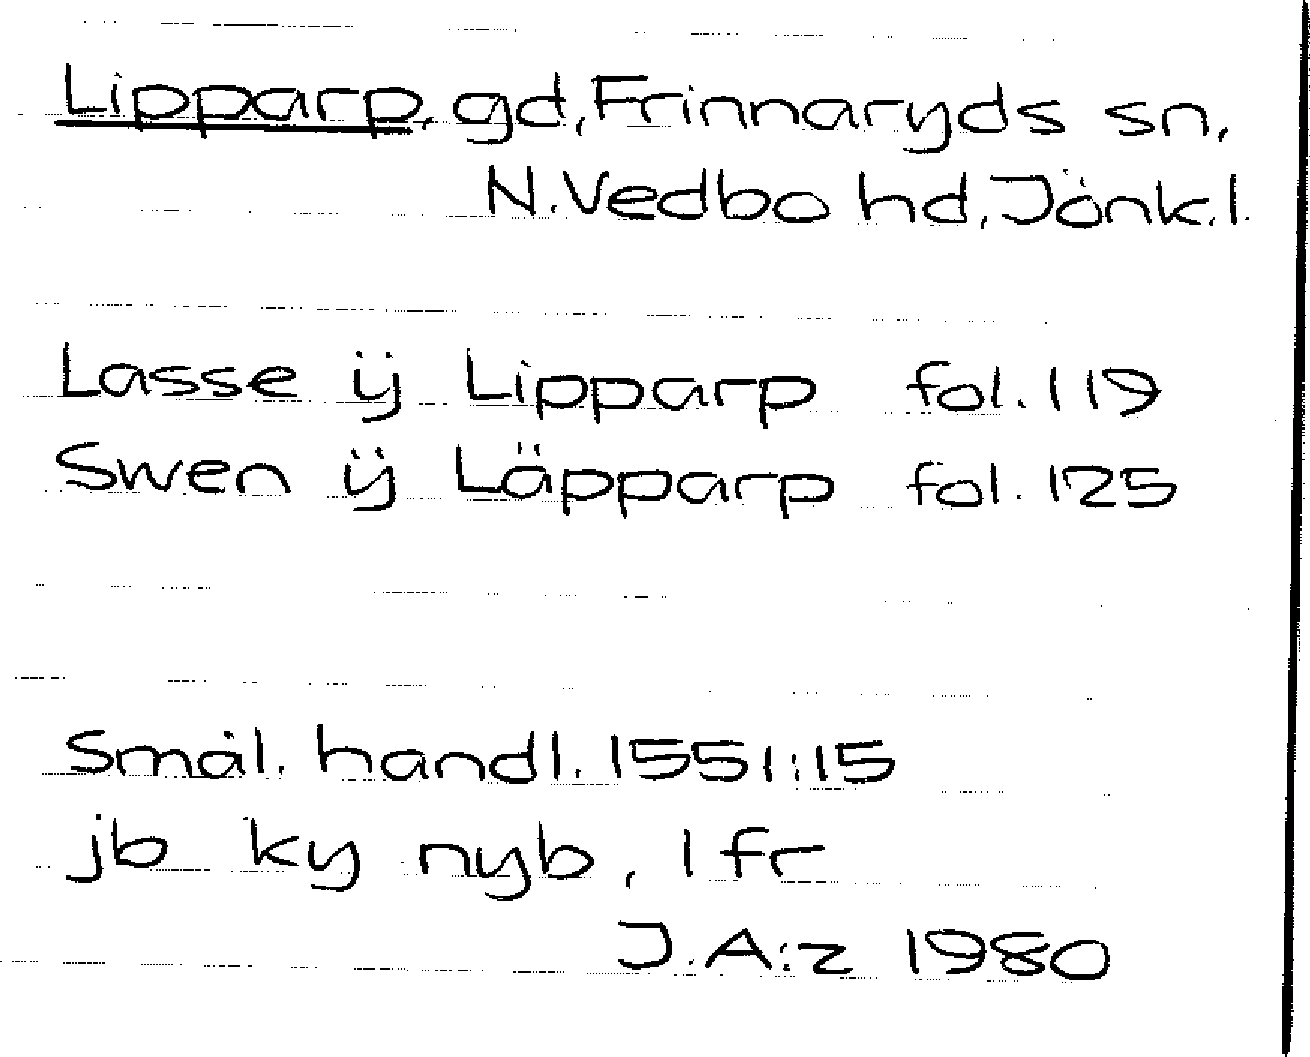 Lipparp, gd, Frinnaryds sn,
N. Vedbo hd, Jönk. l.
Lasse ÿ Lipparp fol. 119
Swen ÿ Läpparp fol. 125
Smål. handl. 1551:15
jb ky nyb, 1 fr
J.A:z 1980